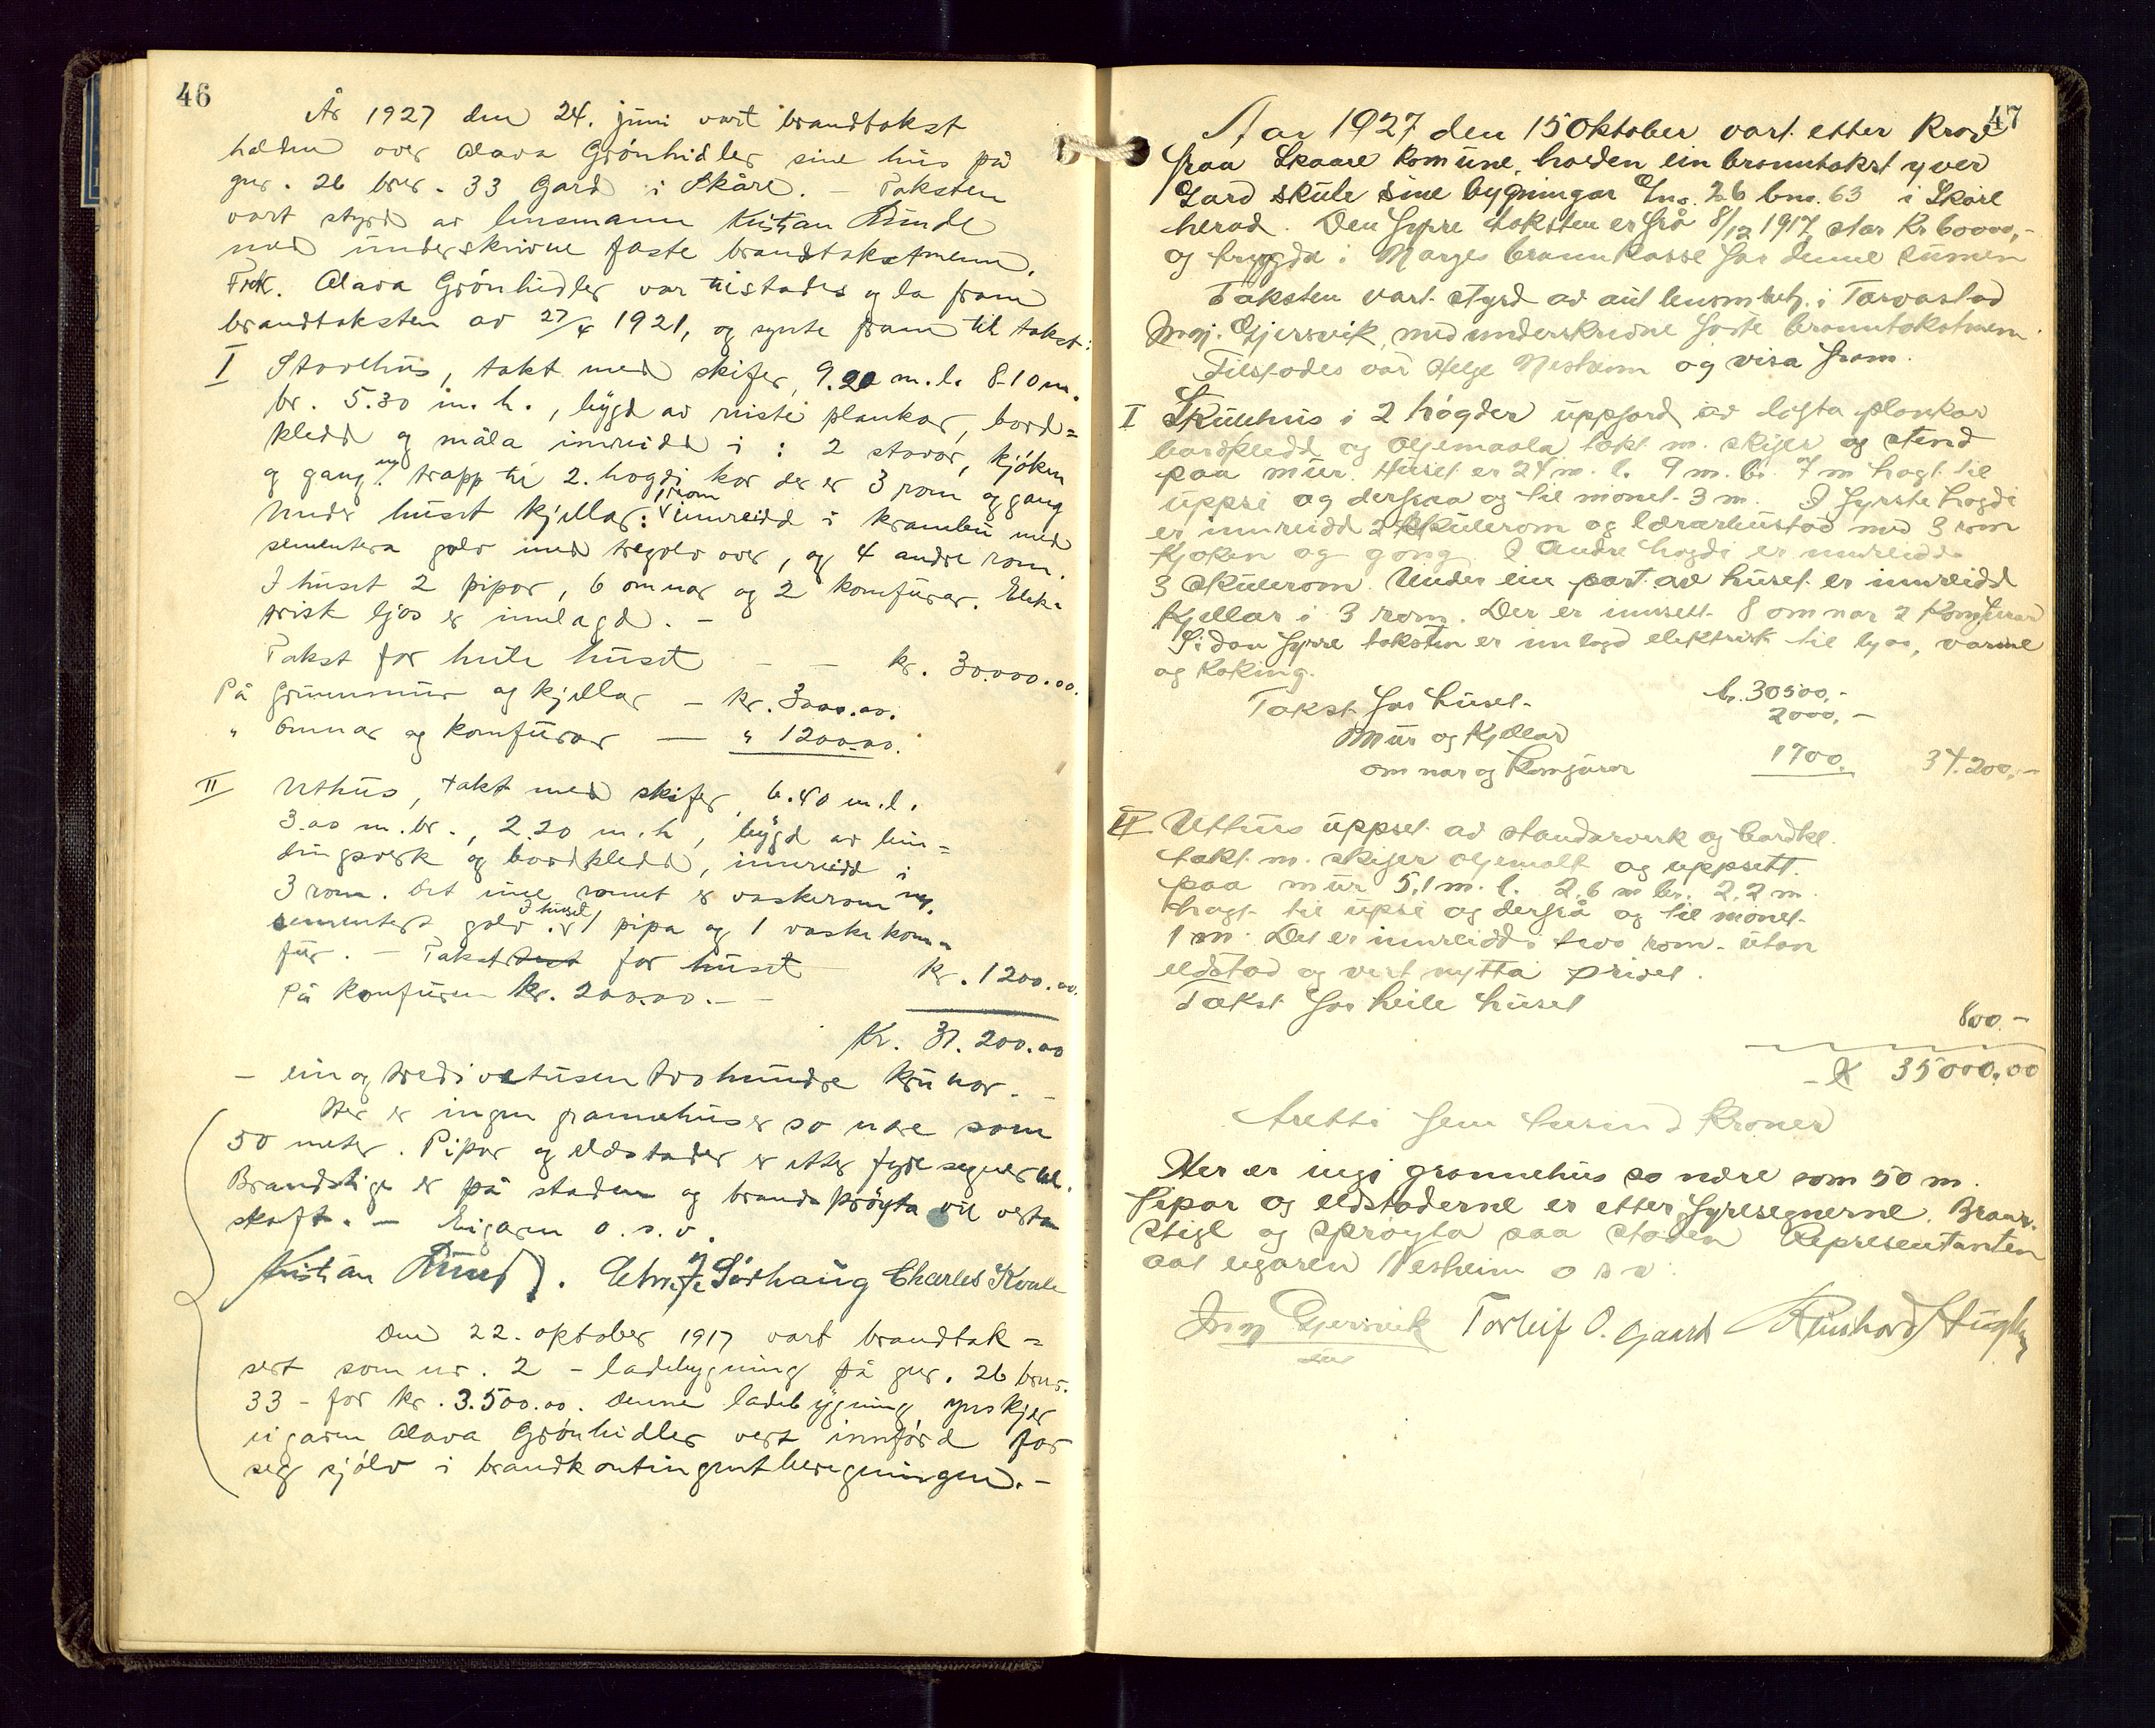 46
År 1927 den 24. juni vart brandtakst
halden over Alava Grönhidler sine hus på
gnr. 26 bnr. 33 Gard i Skåre. – Taksten
vart styrd av lensmann Kristian Lunde
med underskrivne faste brandtakstmenn.
Frk. Alava Grönhidler var tilstades og la fram
brandtaksten av 27/4 1921, og synte fram til takst:
I Stovehus, takt med skifer, 9.20 m.l. 8.10 m.
br. 5.30 m. h., bygd av riste plankar, bord=
kledd og måla innreidd i: 2 stovor, kjöken
og gang m/ trapp til 2. hogdi kor der er 3 rom og gang
Under huset kjellar: 1 rom innreidd i krambu med
sementera golv med tregolv over, og 4 andre rom.
I huset 2 pipor, 6 omnar og 2 komfurar. Elek-
trisk ljos er innlagd. –
Takst for heile huset – – kr. 30.000.00.
På Grunnmur og kjellar – kr. 3000.00.
" Omnar og komfurar — " 1200.00.
II Uthus, takt med skifer, 6.40 m.l.
3.00 m.br., 2.20 m.h, bygd av bin=
dingsverk og bordkledd, innreidd i
3 rom. Det eine romet er vaskerom m.
sementera golv. I huset er 1 pipa og 1 vaskekom=
fur. – Takst for huset – kr. 1200.00.
På Komfuren kr. 200.00. – –
Kr. 31.200.00
– ein og tredivetusen tvohundre krunor. –
Her er ingen grannehuser so nære som
50 meter. Pipor og eldstader er etter fyresegner al.
Brandstige er på staden og brandspröyta vil verta
skaft. – Eigaren o. s. v.
Kristian Lunde. Elm. J. Sörhaug Charles Kvale
Den 22. oktober 1917 vart brandtak=
sert som nr. 2 – ladebygning på gnr. 26 bnr.
33 – for kr. 3.500.00. Denne ladebygning ynskjer
eigaren Alava Grönhidler vert innförd for
seg sjölv i brandkontingentberegningen. –
47
Aar 1927 den 15 Oktober vart etter Krav
fraa Skaare Komune, halden ein branntakst yver
Gard skule sine bygningar Gno. 26 bno. 63 i Skåre
herad. Den fyrre taksten er frå 8/12 1917 stor Kr 60000,-
og trygda i Norges brannkasse for denne sumen
Taksten vart styrd av aut lensm betj. i Torvastad
Ingj. Gjersvik, med underskrivne faste branntakstmenn
Tilstades var Helge Nesheim og visa fram.
I Skulehus i 2 högder uppfört av lafta plankar
bordkledd og oljemaala takt m. skifer og stend
paa mur. Huset er 24 m. l. 9 m. br. 7 m högt til
uppsi og derfraa og til mönet 3 m. I fyrste högdi
er innreidd 2 skulerom og lærarbustad med 3 rom
kjöken og gong. I andre högdi er innreidd
3 skulerom. Under ein part av huset er innreidd
kjellar i 3 rom. Der er innsett 8 omnar 2 Komfurar
Sidan fyrre taksten er innlagd elektrisk til lyas, varme
og koking.
Takst for huset kr. 30500,-
Mur og Kjellar 2000,-
omnar og Komfurar 1700. 34.200,-
II Uthus uppset av standarverk og bordkl.
takt m. skifer oljemalt og uppsett
paa mur 5,1 m. l. 2,6 m br. 2,2 m.
högt til upsi og derfrå og til mönet
1 m. Det er innreidd i tvo rom utan
eldstad og vert nytta privet.
Takst for heile huset
800.-
Kr 35000,00
tretti fem tusind Kroner
Her er ingi grannehus so nære som 50 m.
Pipor og eldstaderne er etter fyresegnerne. Brann-
stige og spröyta paa staden Representanten
aat eigaren Nesheim o s v.
Ingj Gjersvik Torleif O. Gaard